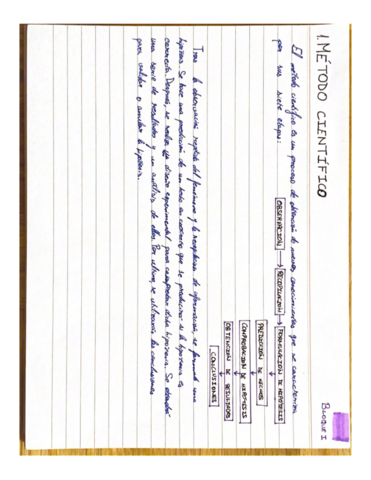 BLOQUE I
1. MÉTODO CIENTÍFICO
El método científico es un proceso de obtención de nuevos conocimientos que se caracteriza
por sus siete etapas:
OBSERVACIÓN → RECOPILACIÓN → FORMULACIÓN DE HIPÓTESIS
PREDICCIÓN DE HECHOS
COMPROBACIÓN DE HIPÓTESIS
OBTENCIÓN DE RESULTADOS
CONCLUSIONES
Tras la observación repetida del fenómeno y la recopilación de información, se formula una
hipótesis. Se hace una predicción de un hecho en concreto que se produciría si la hipótesis es
correcta. Después, se realiza un diseño experimental para comprobar dicha hipótesis. Se obtendrá
una serie de resultados y un análisis de ellos. Por último, se utilizarán las conclusiones
para validar o anular la hipótesis.